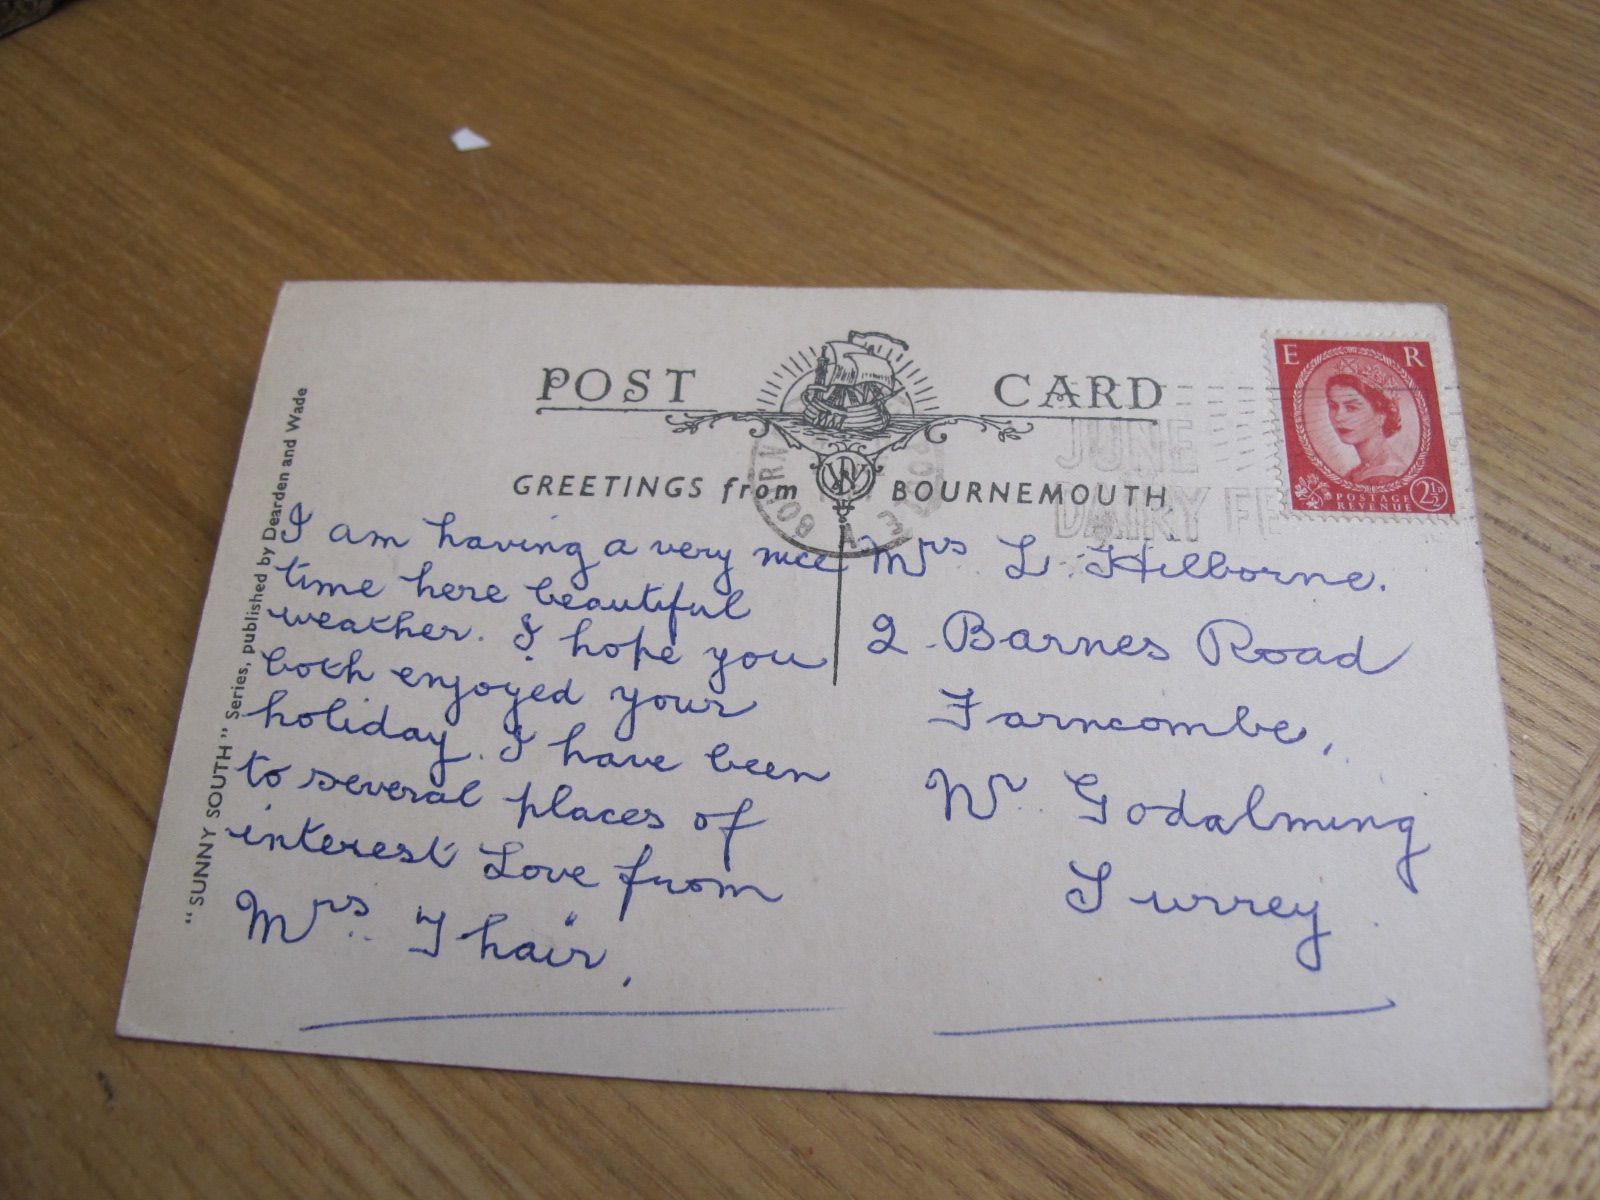 POST CARD
GREETINGS from BOURNEMOUTH
"SUNNY SOUTH" Series, published by Dearden and Wade
I am having a very nice
time here beautiful
weather. I hope you
both enjoyed your
holiday. I have been
to several places of
interest Love from
Mrs. Thair.
Mrs L. Hilborne.
2. Barnes Road
Farncombe,
Nr. Godalming
Surrey.
E R
POSTAGE
REVENUE
2½D
JUNE
DAIRY FE